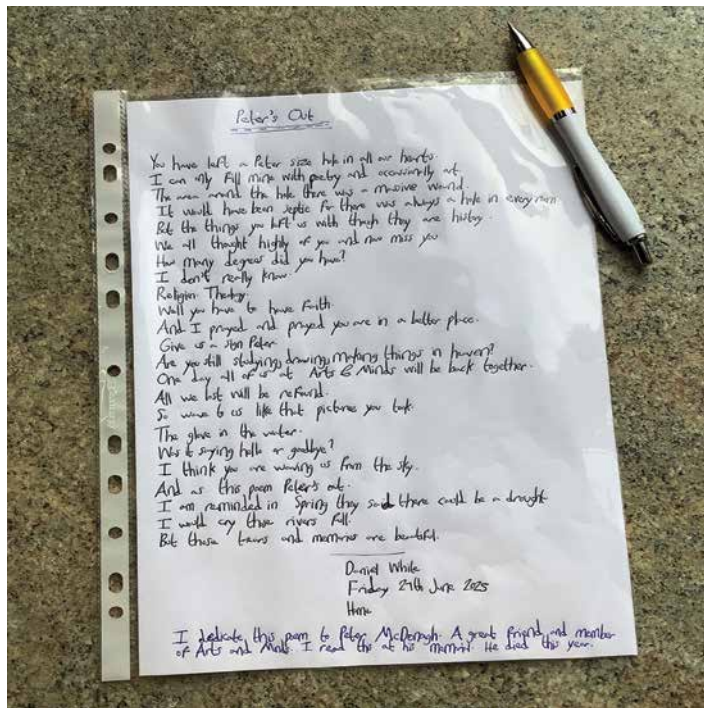 Peter's Out
You have left a Peter size hole in all our hearts.
I can only fill mine with poetry and occasionally art.
The area around the hole there was a massive wound.
It would have been septic for there was always a hole in every room.
But the things you left us with though they are history.
We all thought highly of you and now miss you
How many degrees did you have?
I don't really know.
Religion Theology.
Well you have to have Faith.
And I prayed and prayed you are in a better place.
Give us a sign Peter
Are you still studying, drawing, making things in heaven?
One day all of us at Arts & Minds will be back together.
All we lost will be refound.
So wave to us like that pictures you took.
The glove in the water.
Was it saying hello or goodbye?
I think you are waving us from the sky.
And as this poem Peter's out.
I am reminded in Spring they said there could be a drought
I would cry those rivers full.
But those tears and memories are beautiful.
Daniel White
Friday 27th June 2025
Home
I dedicate this poem to Peter McDonagh. A great friend and member
of Arts and Minds. I read this at his memorial. He died this year.